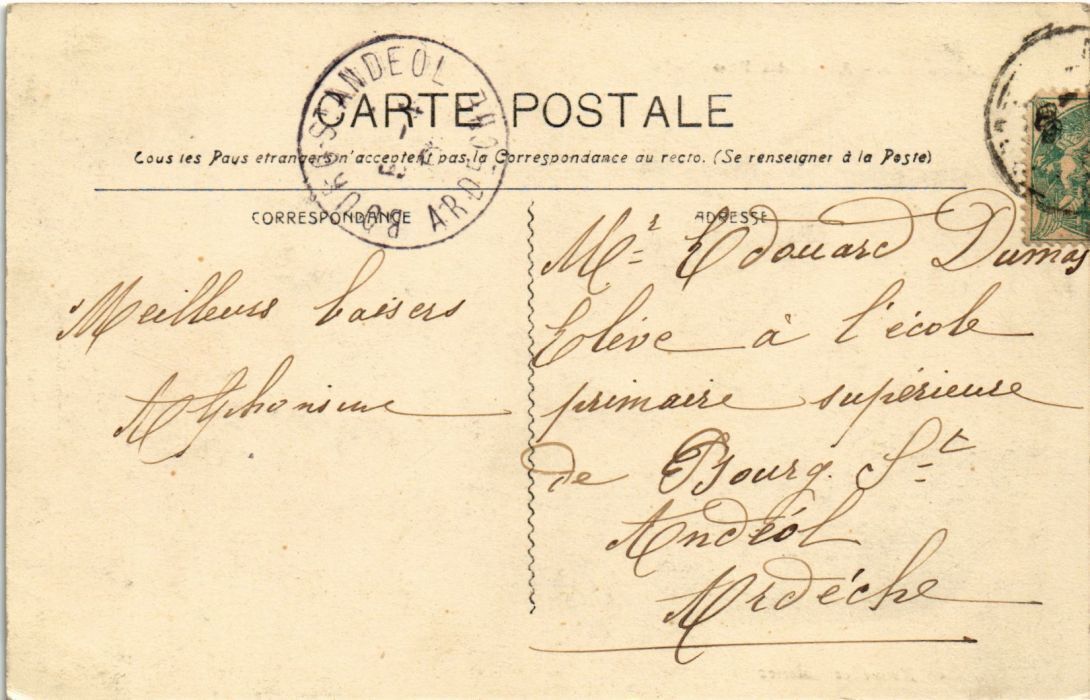 CARTE POSTALE
Tous les Pays etrangers n'acceptent pas la Correspondance au recto. (Se renseigner à la Poste)
BOURG-ST-ANDEOL ARDECHE
CORRESPONDANCE
Meilleurs baisers
Alphonsine
ADRESSE
Mr Edouard Dumas
Elève à l'école
primaire supérieure
de Bourg. St
Andéol
Ardéche